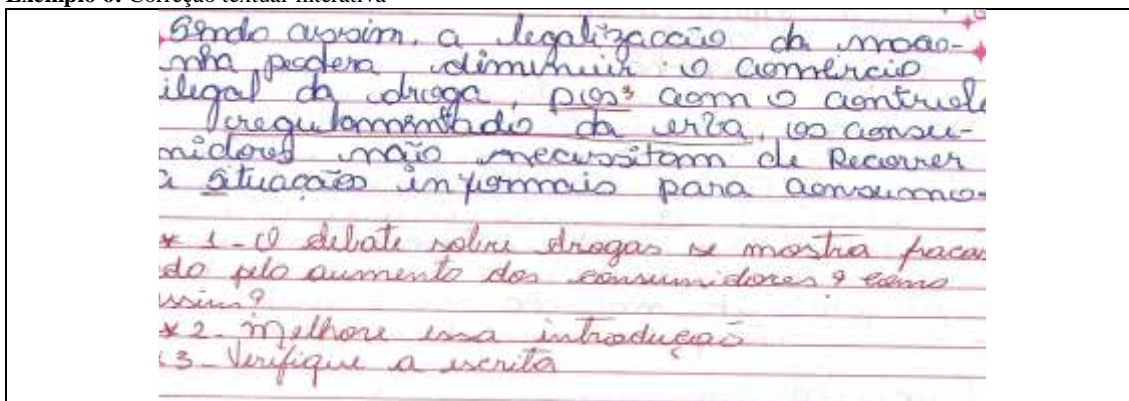 Exemplo 6: Correção textual interativa
Sendo assim, a legalização da maco-
nha podera diminuir o comércio
ilegal da droga, pios³ com o controle
regulamentado da erva, os consu-
midores não necessitam de Recorrer
a situações informais para consumo.
* 1 - O debate sobre drogas se mostra fracas
do pelo aumento dos consumidores? como
assim?
* 2 - Melhore essa introdução
3 - Verifique a escrita